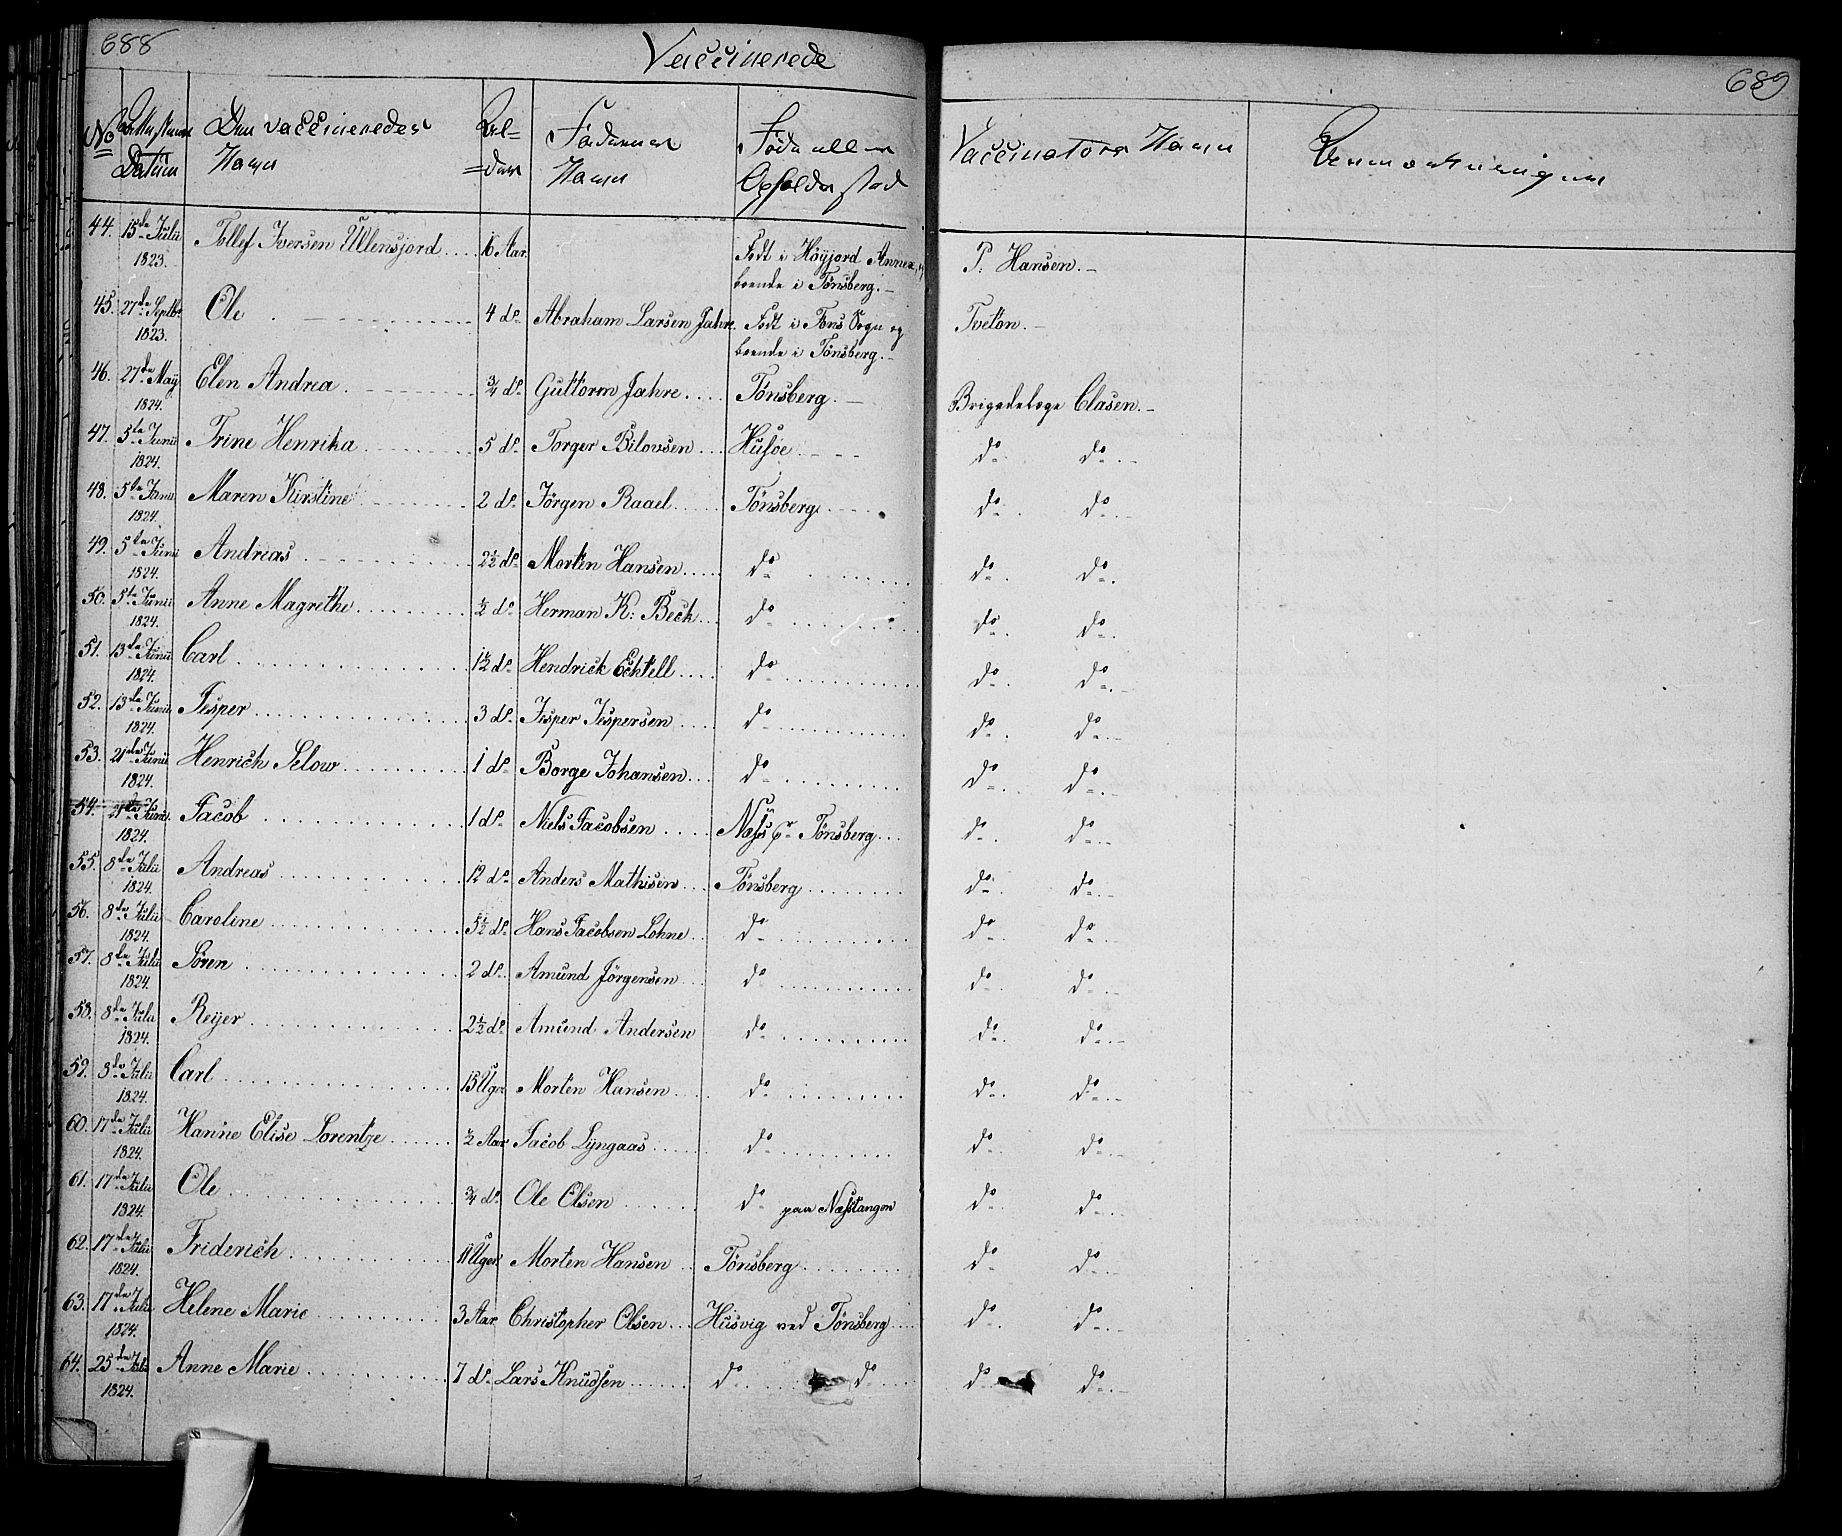 688
Vaccinerede
689
No
Datum
Den vaccineredes Navn
Al=
=der
Faderens Navn
Føde eller
Opholds sted
Vaccinators Navn
Anmærkninger
44. 15de Julii 1823. Tollef Iversen Ullensjord .... 16 Aar. Født i Höyjord Annex, boende i Tönsberg.- P. Hansen.-
45. 27de Septbr 1823. Ole 4 do Abraham Larsen Jahre. Født i Sogn og boende i Tönsberg.- Tveton.-
46. 27de May 1824. Elen Andrea 3/4 do Guttorm Jahre.... Tönsberg.- Brigadelæge Clasen.-
47. 5te Junii 1824. Trine Henrika 5 do Torger Bilovsen ... Husöe do do
48. 5te Junii 1824. Maren Kirstine 2 do Jörgen Raael Tönsberg do do
49. 5te Junii 1824. Andreas 2½ do Morten Hansen do do do
50. 5te Junii 1824. Anne Magrethe ½ do Herman K: Beck do do do
51. 13de Junii 1824. Carl 1½ do Hendrick Echtell do do do
52. 13de Junii 1824. Jesper 3 do Jesper Jespersen do do do
53. 21de Junii 1824. Henrich Selow 1 do Borge Johansen do do do
54. 21de Junii 1824. Jacob 1 do Niels Jacobsen Næss pr Tönsberg do do
55. 8de Julii 1824. Andreas 12 do Anders Mathisen Tönsberg do do
56. 8de Julii 1824. Caroline 5½ do Hans Jacobsen Lohne do do do
57. 8de Julii 1824. Sören 2 do Amund Jörgensen do do do
58. 8de Julii 1824. Reyer 2½ do Amund Andersen do do do
59. 8de Julii 1824. Carl 13 Uger Morten Hansen do do do
60. 17de Julii 1824. Hanne Elise Lorentze ½ Aar Jacob Lyngaas do do do
61. 17de Julii 1824. Ole 3/4 do Ole Olsen do paa Næsstangen do do
62. 17de Julii 1824. Friderich 11 Uger. Morten Hansen Tönsberg do do
63. 17de Julii 1824. Helene Marie 3 Aar Christopher Olsen Husvig ved Tönsberg do do
64. 25de Julii 1824. Anne Marie 7 do Lars Knudsen do do do do